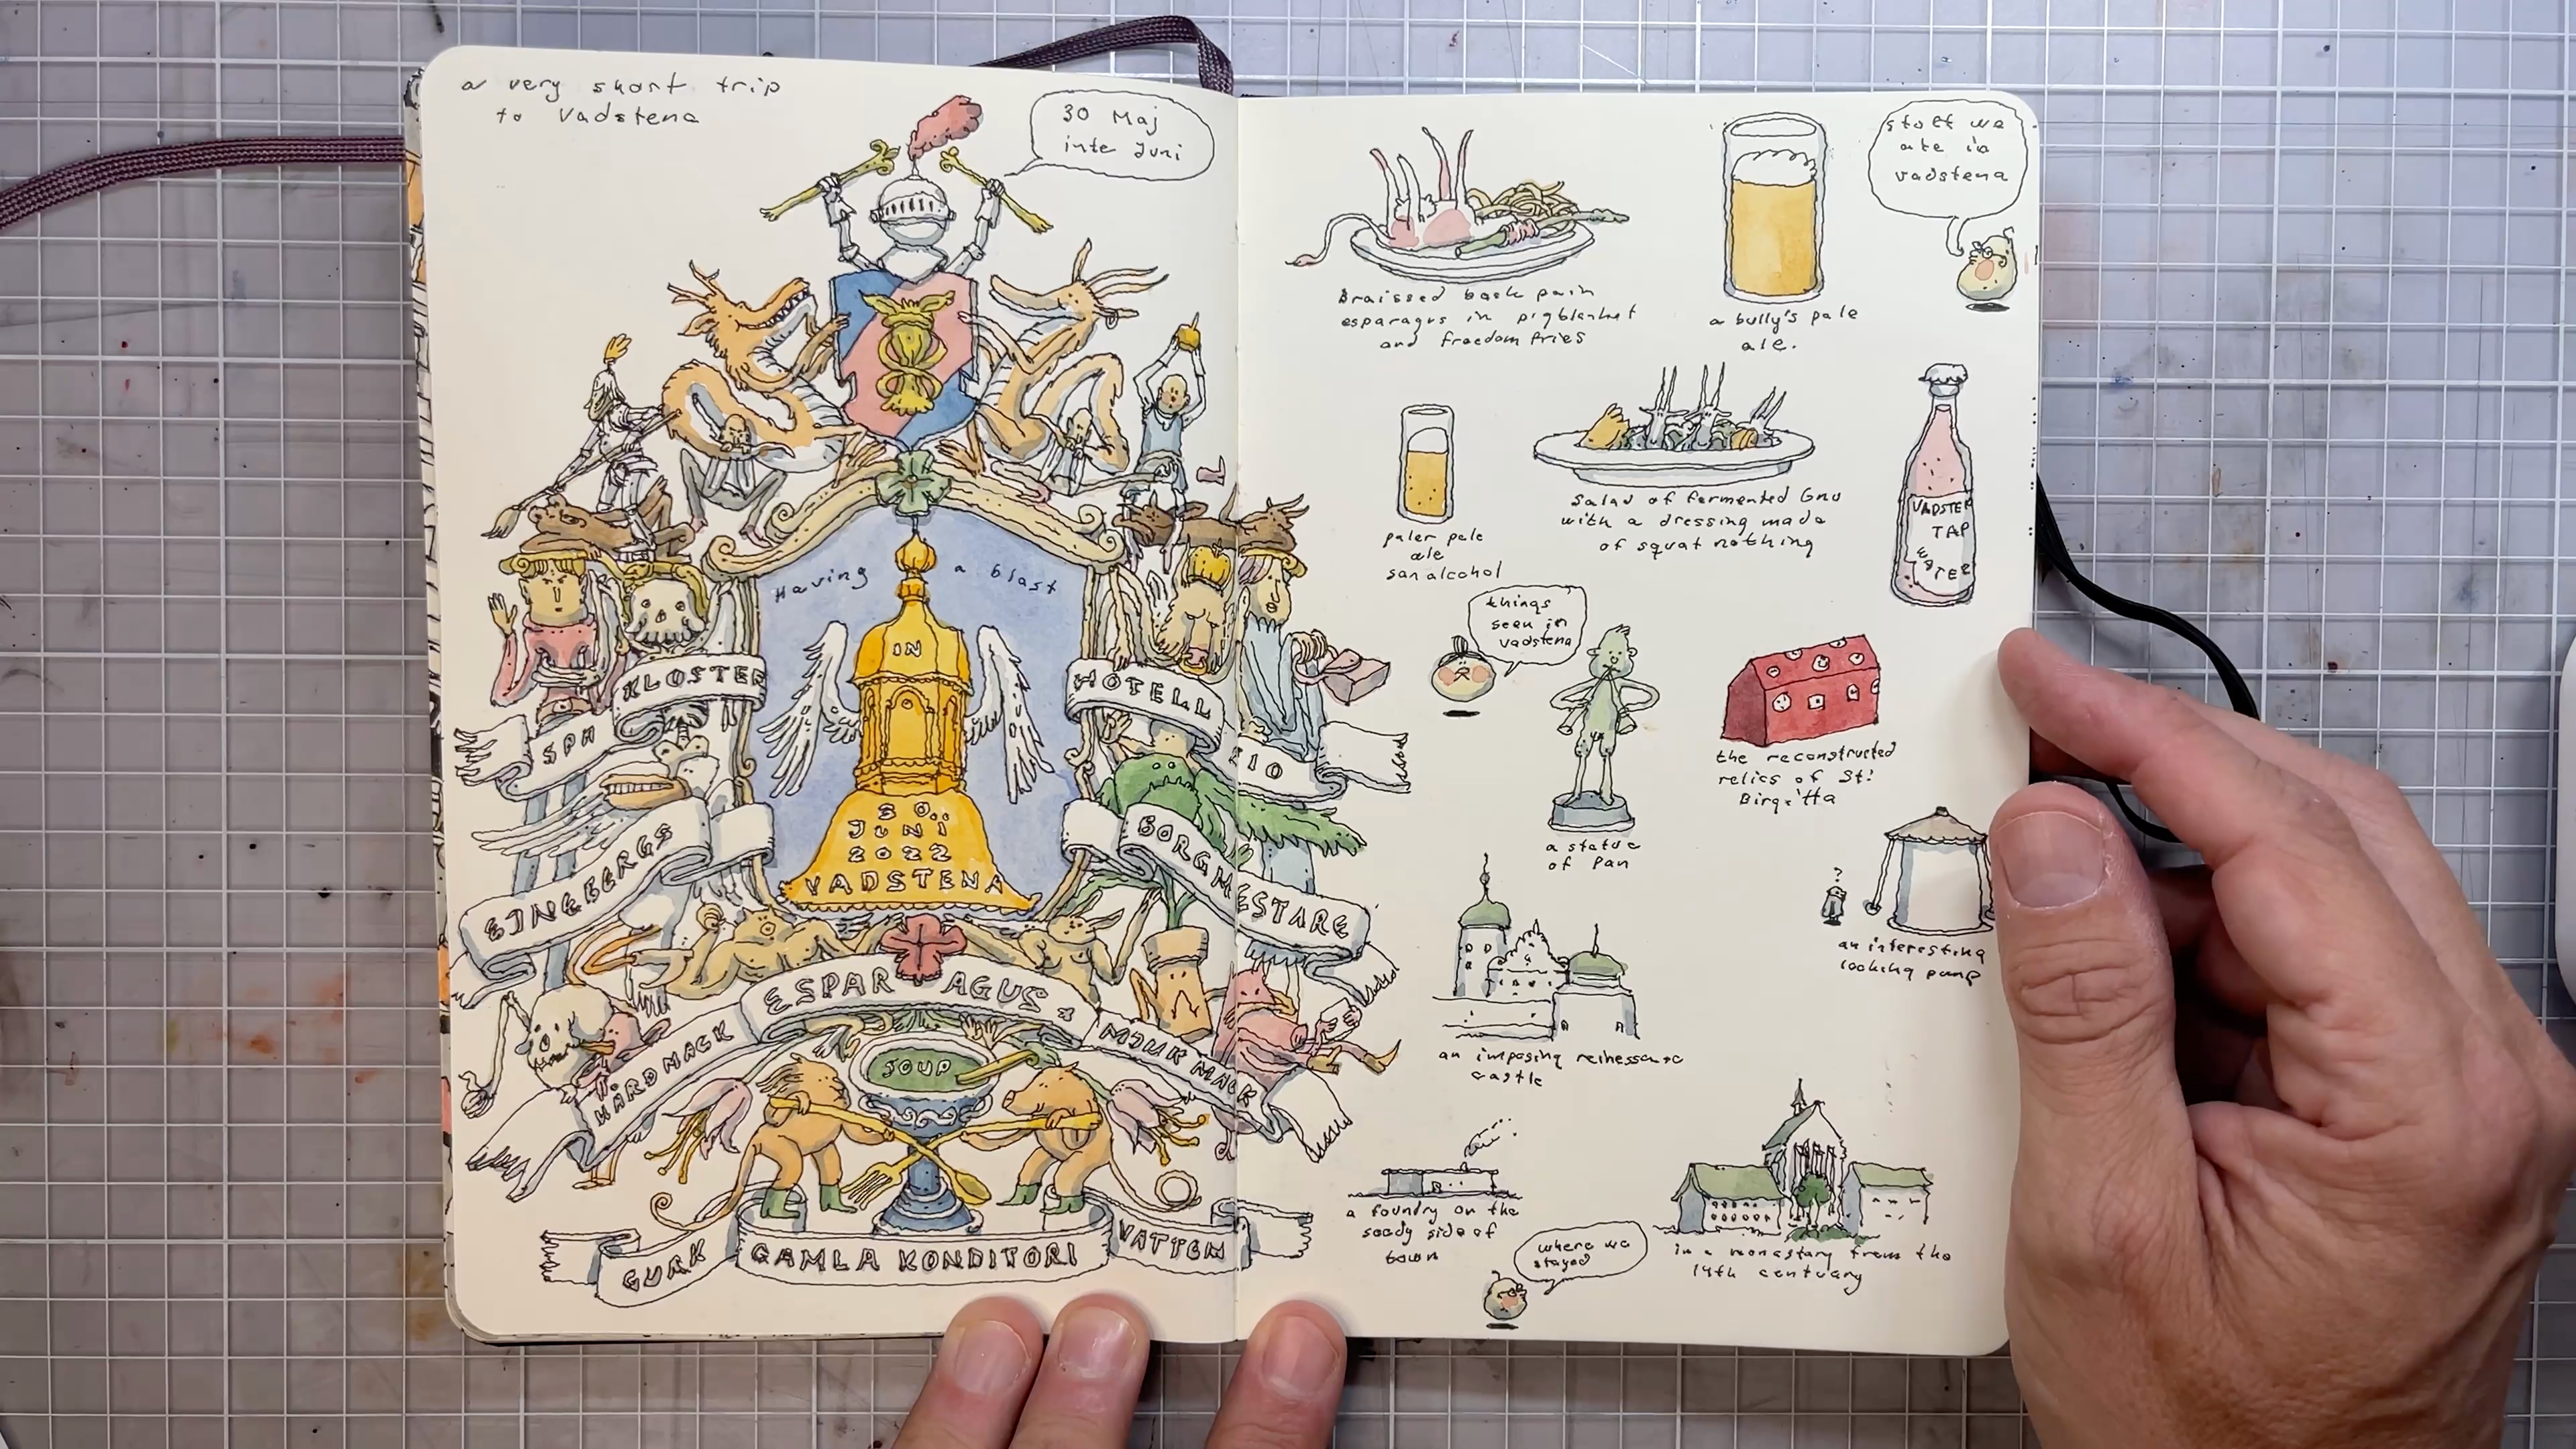 a very short trip
to Vadstena
30 Maj
inte Juni
Having a blast
IN
30
JUNI
2022
VADSTENA
KLOSTER
HOTELL
SPA
210
BORGMESTARE
ESPAR AGUS &
HÅRD MACK
MJUK MACK
SOUP
GURK
GAMLA KONDITORI
VATTEN
stoff we
ate in
vadstena
Braissed back pain
esparagus in pigblanket
and freedom fries
a bully's pale
ale.
paler pale
ale
san alcohol
Salad of fermented Gnu
with a dressing made
of squat nothing
VADSTE
TAP
WATER
things
seen in
vadstena
a statue
of Pan
the reconstructed
relics of St:
Birgitta
?
an interesting
looking pump
an imposing
castle
a foundry on the
seedy side of
town
where we
stayed
in a monastary from the
14th centuary